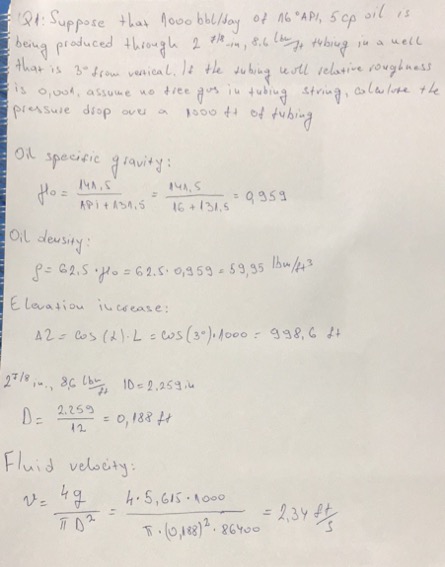 Q1: Suppose that 1000 bbl/day of 16° API, 5 cp oil is
being produced through 2 7/8 -in, 8,6 lbm/ft tubing in a well
that is 3° from verical. If the tubing wall relative roughness
is 0,001, assume no free gas in tubing string, calculate the
pressure drop over a 1000 ft of tubing
Oil specific gravity:
γo = 141,5 / API + 131,5 = 141,5 / 16 + 131,5 = 0,959
Oil density:
ρ = 62.5 · γo = 62.5 · 0,959 = 59,95 lbm/ft³
Elevation increase:
ΔZ = cos (α) · L = cos (3°) · 1000 = 998,6 ft
2 7/8 in., 8,6 lbm/ft ID = 2,259 in
D = 2.259 / 12 = 0,188 ft
Fluid velocity:
v = 4q / π D² = 4 · 5,615 · 1000 / π · (0,188)² · 86400 = 2,34 ft/s